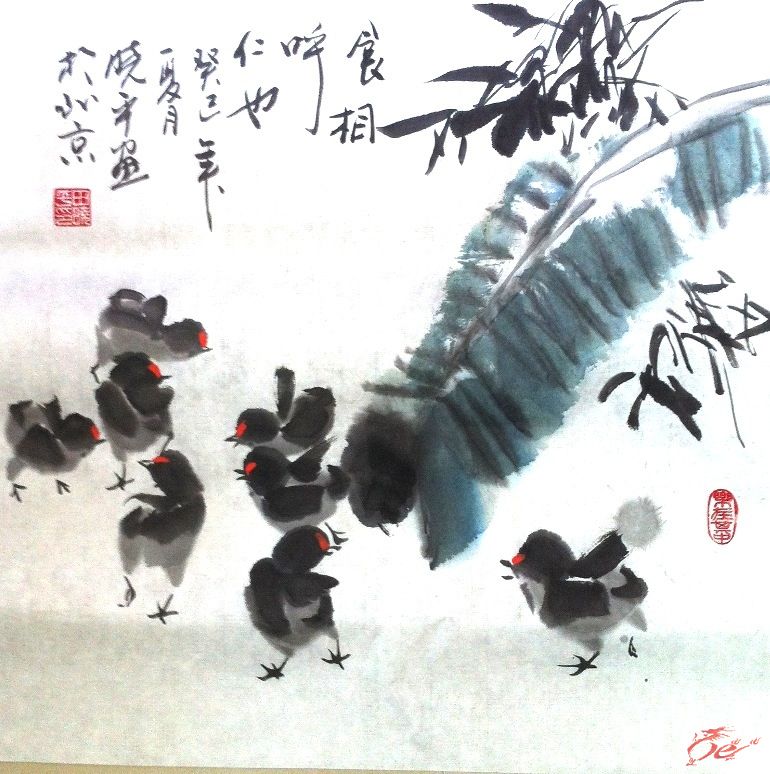 食相
呼
仁也
癸巳年
夏月
晓平画
于北京